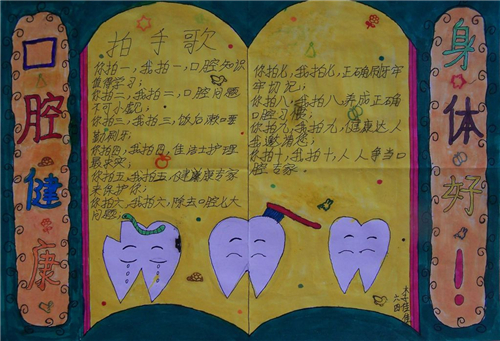 口腔健康
拍手歌
你拍一,我拍一,口腔知识
值得学习;
你拍二,我拍二,口腔问题
不可小视;
你拍三,我拍三,饭后漱口要
勤刷牙;
你拍四,我拍四,佳洁士护理
你拍五,我拍五,健康专家
来保护你;
你拍六,我拍六,除去口腔大
问题;
你拍七,我拍七,正确刷牙牢
牢切记;
你拍八,我拍八,养成正确
口腔习惯;
你拍九,我拍九,健康达人
我邀请您;
你拍十,我拍十,人人争当口
腔专家.
六四
身体好!